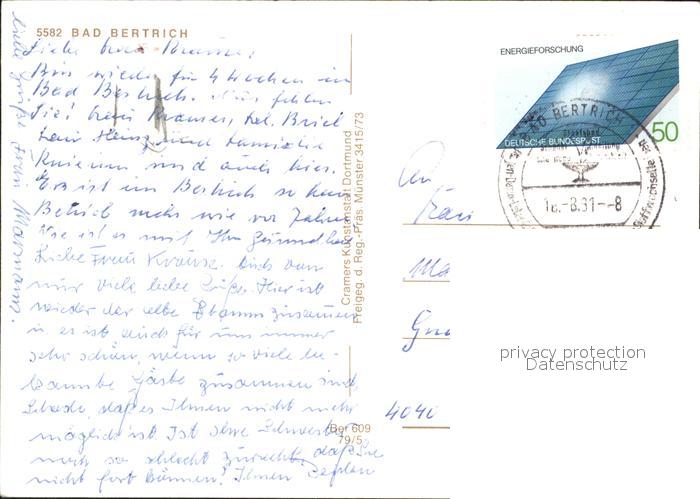 5582 BAD BERTRICH
Liebe Frau Krause,
Bin wieder für 4 Wochen in
Bad Bertrich. Uns fehlen
Sie! Frau
Familie
sind auch hier.
Es ist in Bertrich so kein
Betrieb mehr wie vor Jahren
Wie ist es mit Ihrer Gesundheit
Liebe Frau Krause. Auch von
mir viele liebe Grüße. Hier ist
wieder der alte Stamm zusammen
u. es ist auch für uns immer
sehr schön, wenn so viele be-
kannte Gäste zusammen sind.
Schade, daß es Ihnen nicht mehr
möglich ist. Ist Ihre Schwester
noch so schlecht zurecht, daß Sie
nicht fort können? Ihnen
Liebe Grüße Frau
Cramers Kunstanstalt Dortmund
Freigeg. d. Reg.-Präs. Münster 3415/73
Ber 609
79/5
ENERGIEFORSCHUNG
DEUTSCHE BUNDESPOST
50
BAD BERTRICH
18.-8.81.--8
An
Frau
4040
privacy protection
Datenschutz